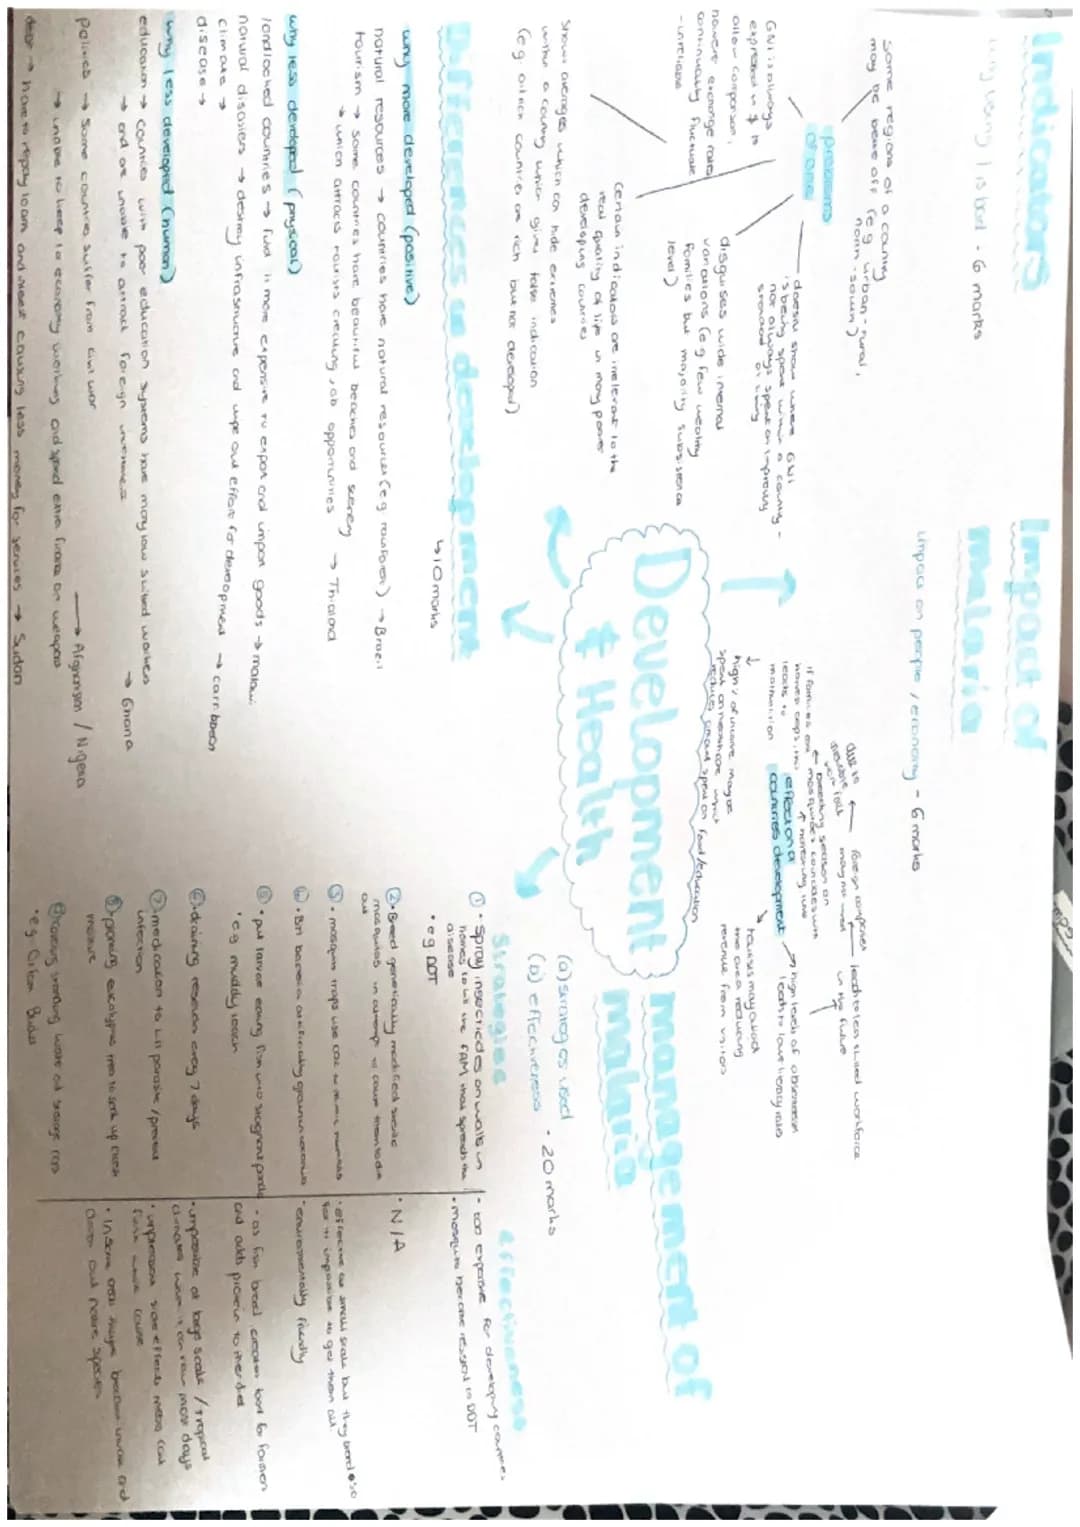 Indicators
why using 1 is bad - 6 marks
some regions of a country
may be better off (eg urban-rural,
north-south)
problems
of one
GNI is always
expressed in $ to
allow comparison,
however exchange rates
continually fluctuate
- unreliable
doesnt show where GNI
is being spent within a country -
not always spent on improving
standard of living
disguises wide internal
variations (eg few wealthy
families but majority subsistence
level)
Certain indicators are irrelevant to the
real quality of life in many poorer
developing countries
Shows averages which can hide extremes
within a country which gives false indication
(eg. oil rich countries are rich but not developed)
Impact of
malaria
impact on people / economy - 6 marks
effect on a
countries development
if farmers are
harvest crops, this
leads to
malnutrition
breeding season on
mosquitoes coincides with
harvesting time
foreign companies
may not invest
in the future
lead to less skilled workforce
high levels of absenteeism
lead to lower literacy rates
tourists may avoid
the area reducing
revenue from visitors
high % of income may be
spent on healthcare which
reduces amount spent on food/education
Development
& Health
Differences in development
↳ 10 marks
why more developed (positive)
natural resources → countries have natural resources (eg rainforest) → Brazil
tourism → some countries have beautiful beaches and scenery
→ which attracts tourists creating job opportunities → Thailand
why less developed (physical)
landlocked countries → find it more expensive to export and import goods → malawi
natural disasters → destroy infrastructure and wipe out efforts for development → carribbean
climate →
disease →
why less developed (human)
education → countries with poor education systems have many low skilled workers
→ and are unable to attract foreign investment → Ghana
policies → some countries suffer from civil war
→ unable to keep to economy working and spend extra finance on weapons → Afghanistan / Nigeria
debt → have to repay loan and interest causing less money for services → Sudan
management of
malaria
(a) strategies used
(b) effectiveness - 20 marks
Strategies
① • Spray insecticides on walls in
homes to kill the FAM that spreads the
disease
• eg DDT
② • Breed genetically modified sterile
mosquitos in attempt to cause them to die
out
③ • mosquito traps use
④ • Bti bacteria artificially grown in coconuts
⑤ • put larvae eating fish into stagnant ponds
• eg muddy loach
⑥ • draining reservoirs every 7 days
⑦ • medication to kill parasite / prevent
infection
⑧ • planting eucalyptus trees to soak up excess
moisture
⑨ covers standing water and storage cans
• eg
effectiveness
• too expensive for developing countries
• mosquitos became resistant to DDT
• N/A
• effective on small scale but they breed so
fast its impossible to get them all
• environmentally friendly
• as fish breed creates food for farmers
and adds protein to their diet
• impossible at large scale / tropical
climates where it can rain most days
• unpleasant side effects
• In some areas they've become invasive and
driven out native species